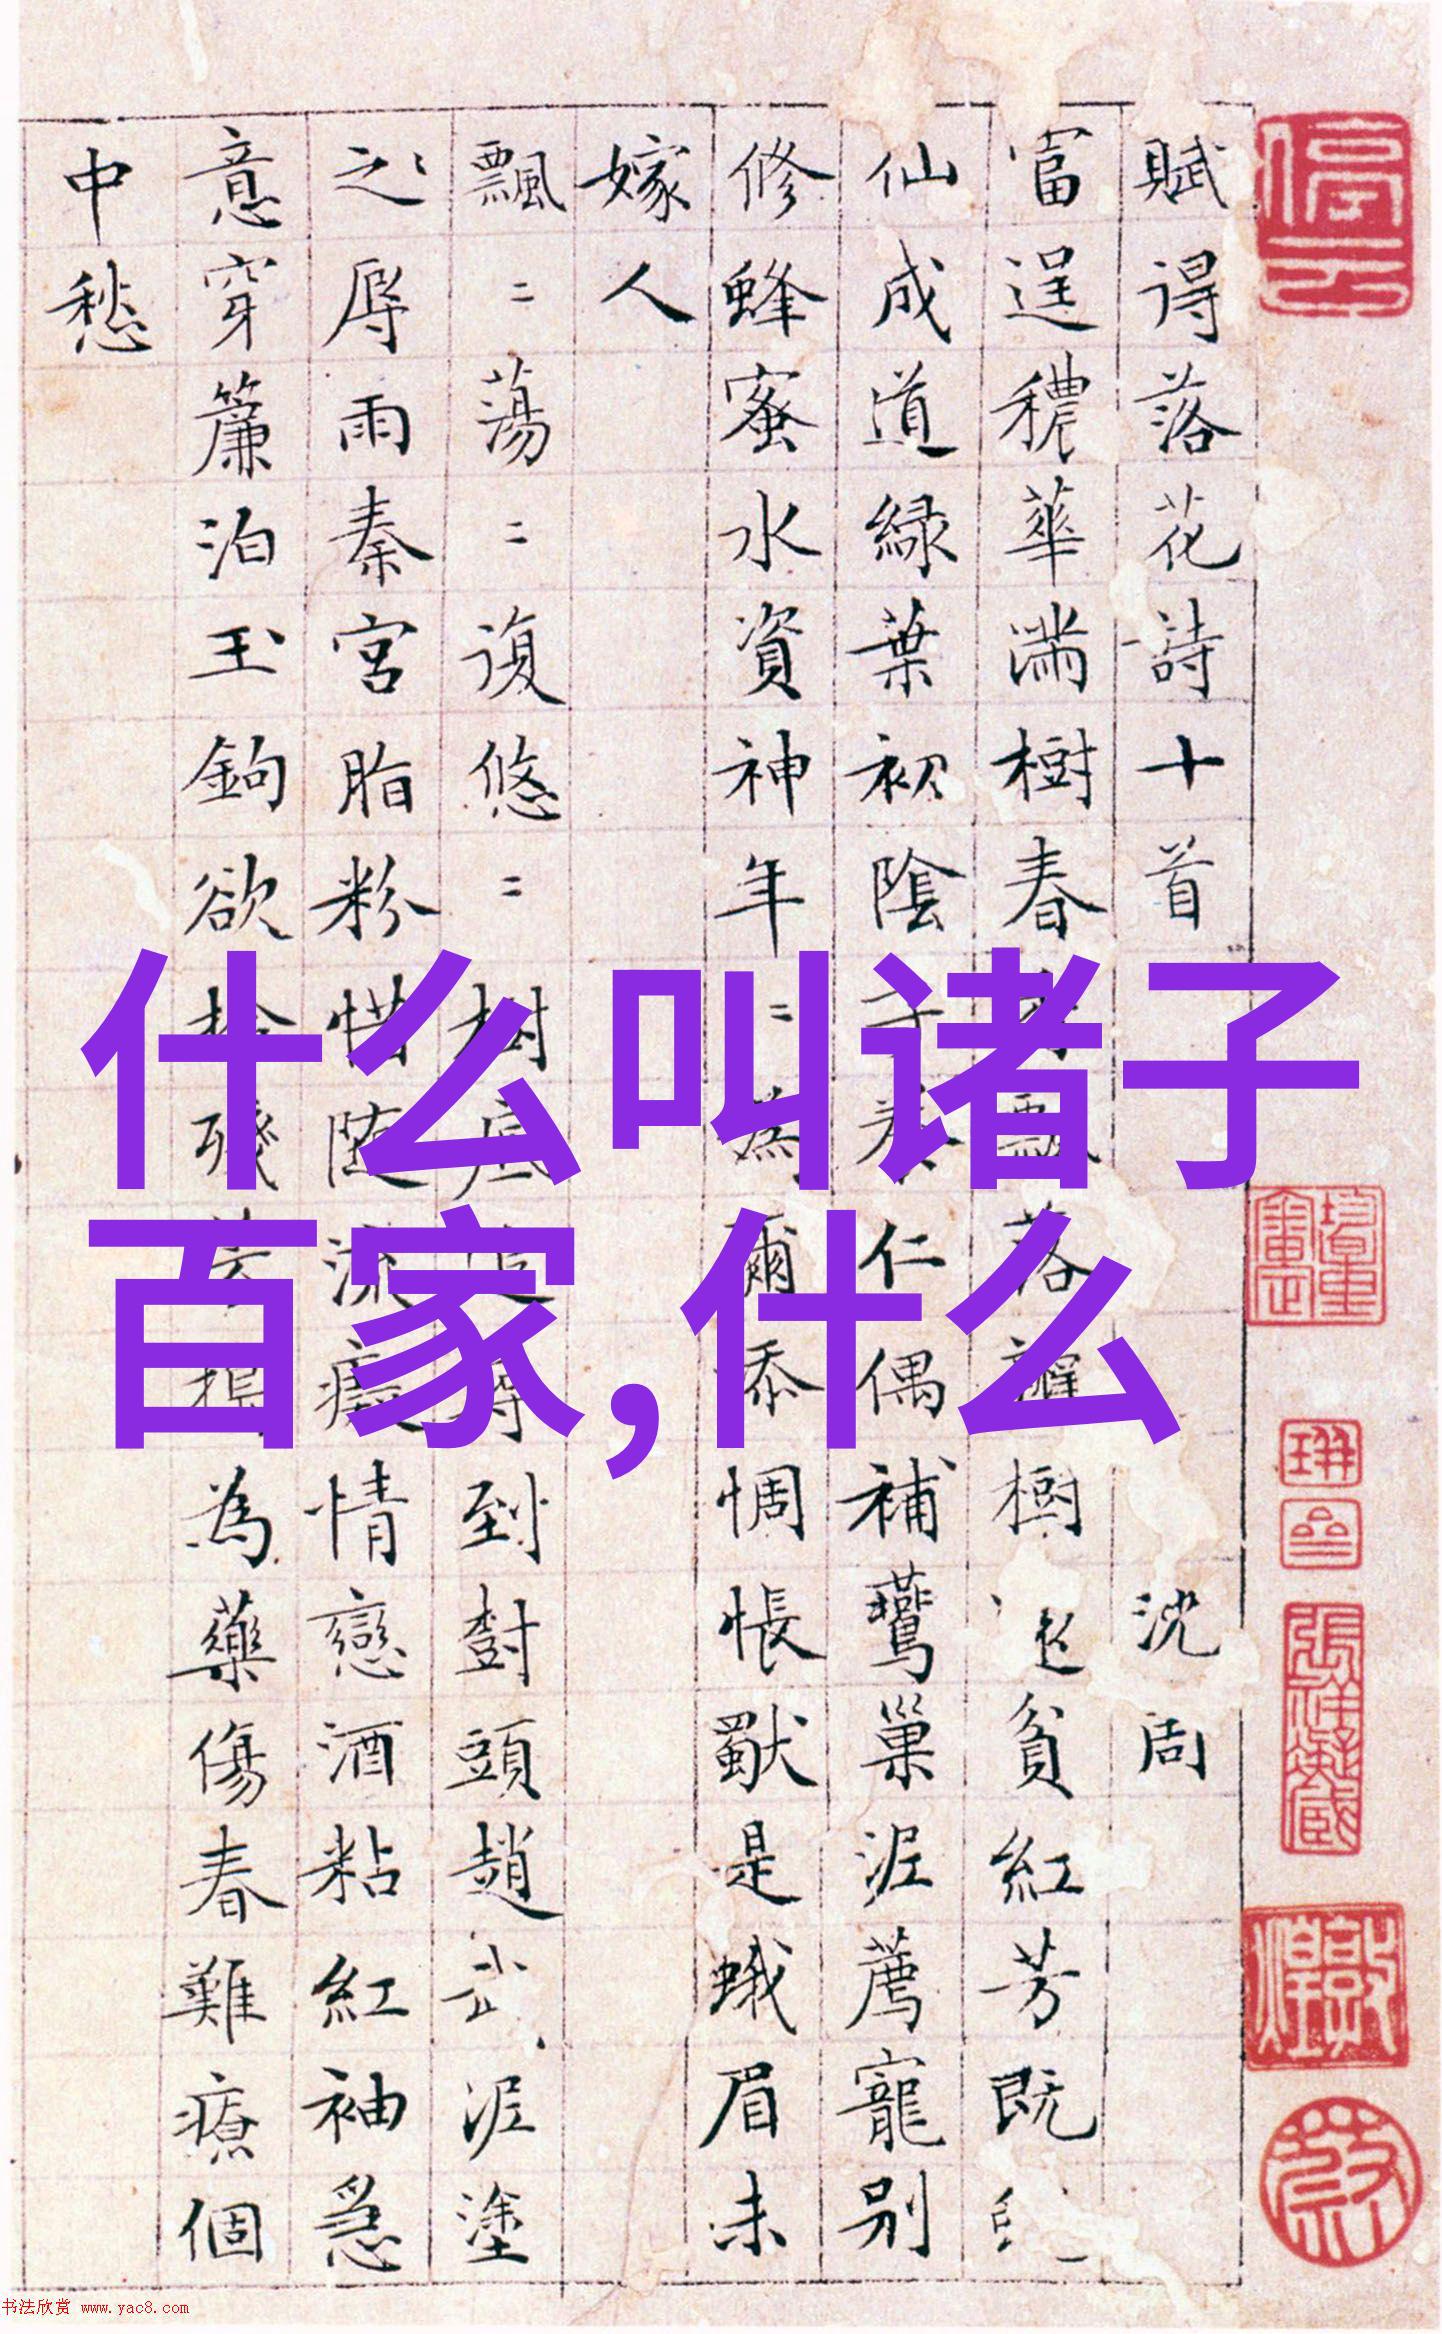 賦得落花詩十首 沈周
富逞穠華滿樹春 落 樹 貧紅芳既
仙成道綠葉初陰子 仁偶補鶯巢泥薦寵別
修蜂蜜水資神年〻為爾添惆悵獸是蛾眉未
嫁人
飄〻蕩〻復悠〻樹底 到樹頭趙 泥塗
之辱雨秦宮脂粉惜隨流癡情戀酒粘紅袖急
意穿簾泊玉鉤欲拾殘 為藥傷春難療個
中愁
什么叫诸子
百家,什么
停云
书法欣赏 www.yac8.com